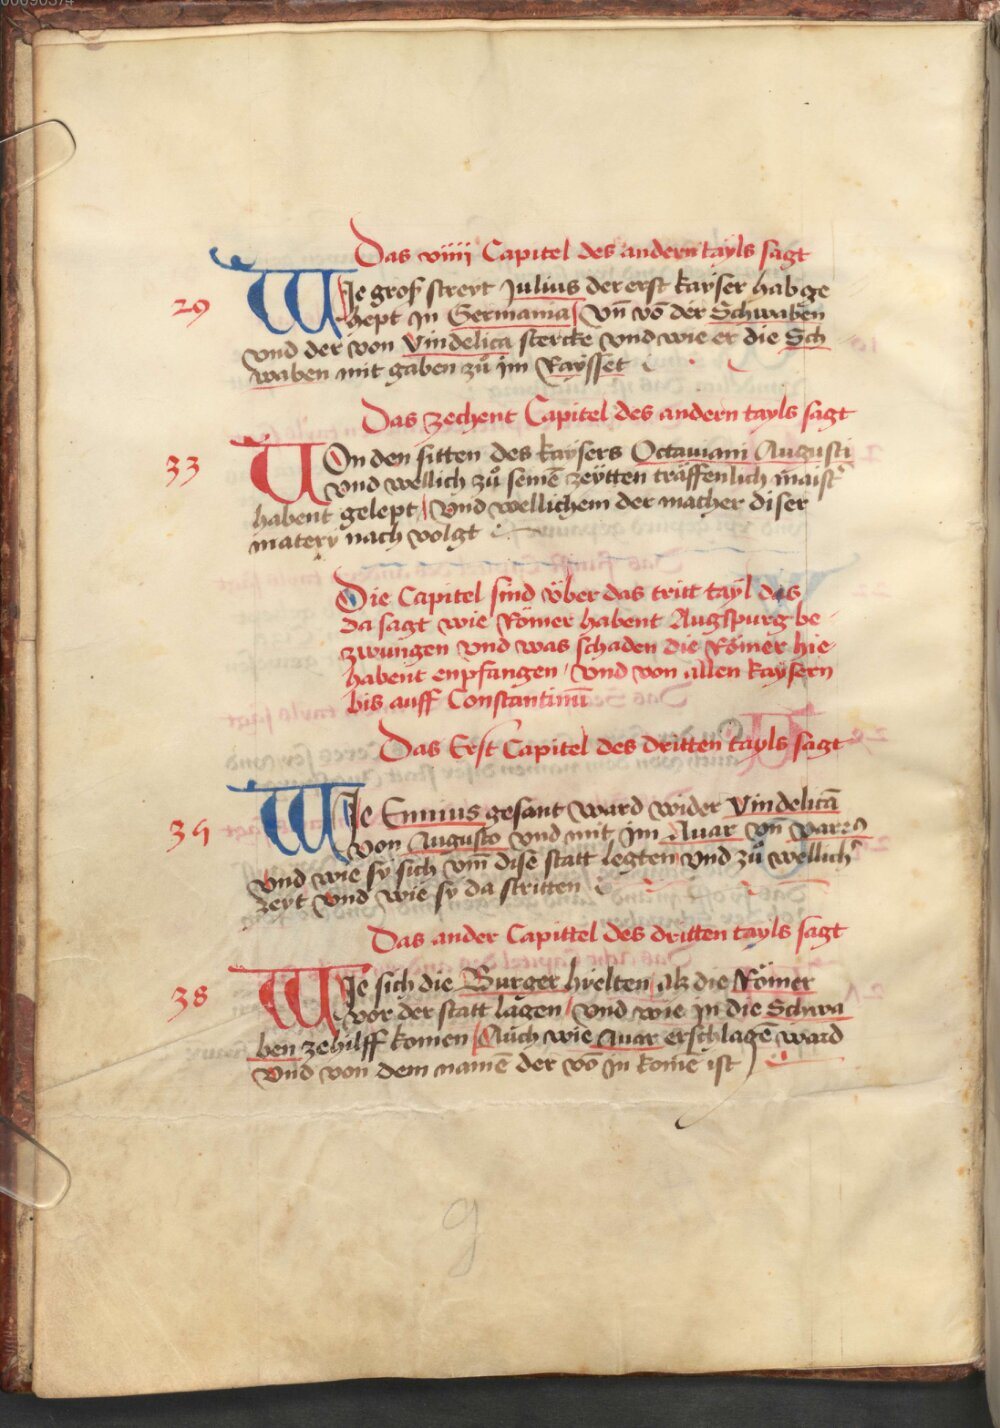 Das viiii Capitel des andern tayls sagt
29 WJe groß streyt Julius der erst kayser hab ge
hept Jn Germania / vn̄ vō der Schwaben
vnd der von Vindelica stercke vnd wie er die Sch
waben mit gaben zů jm Raysset
Das zechent Capitel des andern tayls sagt
33 VOn den sitten des kaysers Octauiani Augusti
vnd wellich zů seinē zeytten träffenlich maist͛
habent gelept / Vnd wellichem der macher diser
matery nach volgt
Die Capitel sind über das tritt tayl das
da sagt wie Römer habent Augspurg be-
zwungen vnd was schaden die Römer hie
habent enpfangen / vnd von allen kaysern
bis auff Constantinū
Das Erst Capitel des dritten tayls sagt
35 WJe Ennius gesant ward wider Vindelicā
von Augusto vnd mit Jm Auar vn̄ varro
vnd wie sy sich vm̄ dise statt legten vnd zů wellich͛
zeyt vnd wie sy da stritten
Das ander Capittel des dritten tayls sagt
38 WJe sich die Burger hielten als die Römer
vor der statt lägen / vnd wie jn die Schwa
ben ze hilff komen / Auch wie Auar erschlagē ward
Vnd von dem namē der vō jn komē ist
g